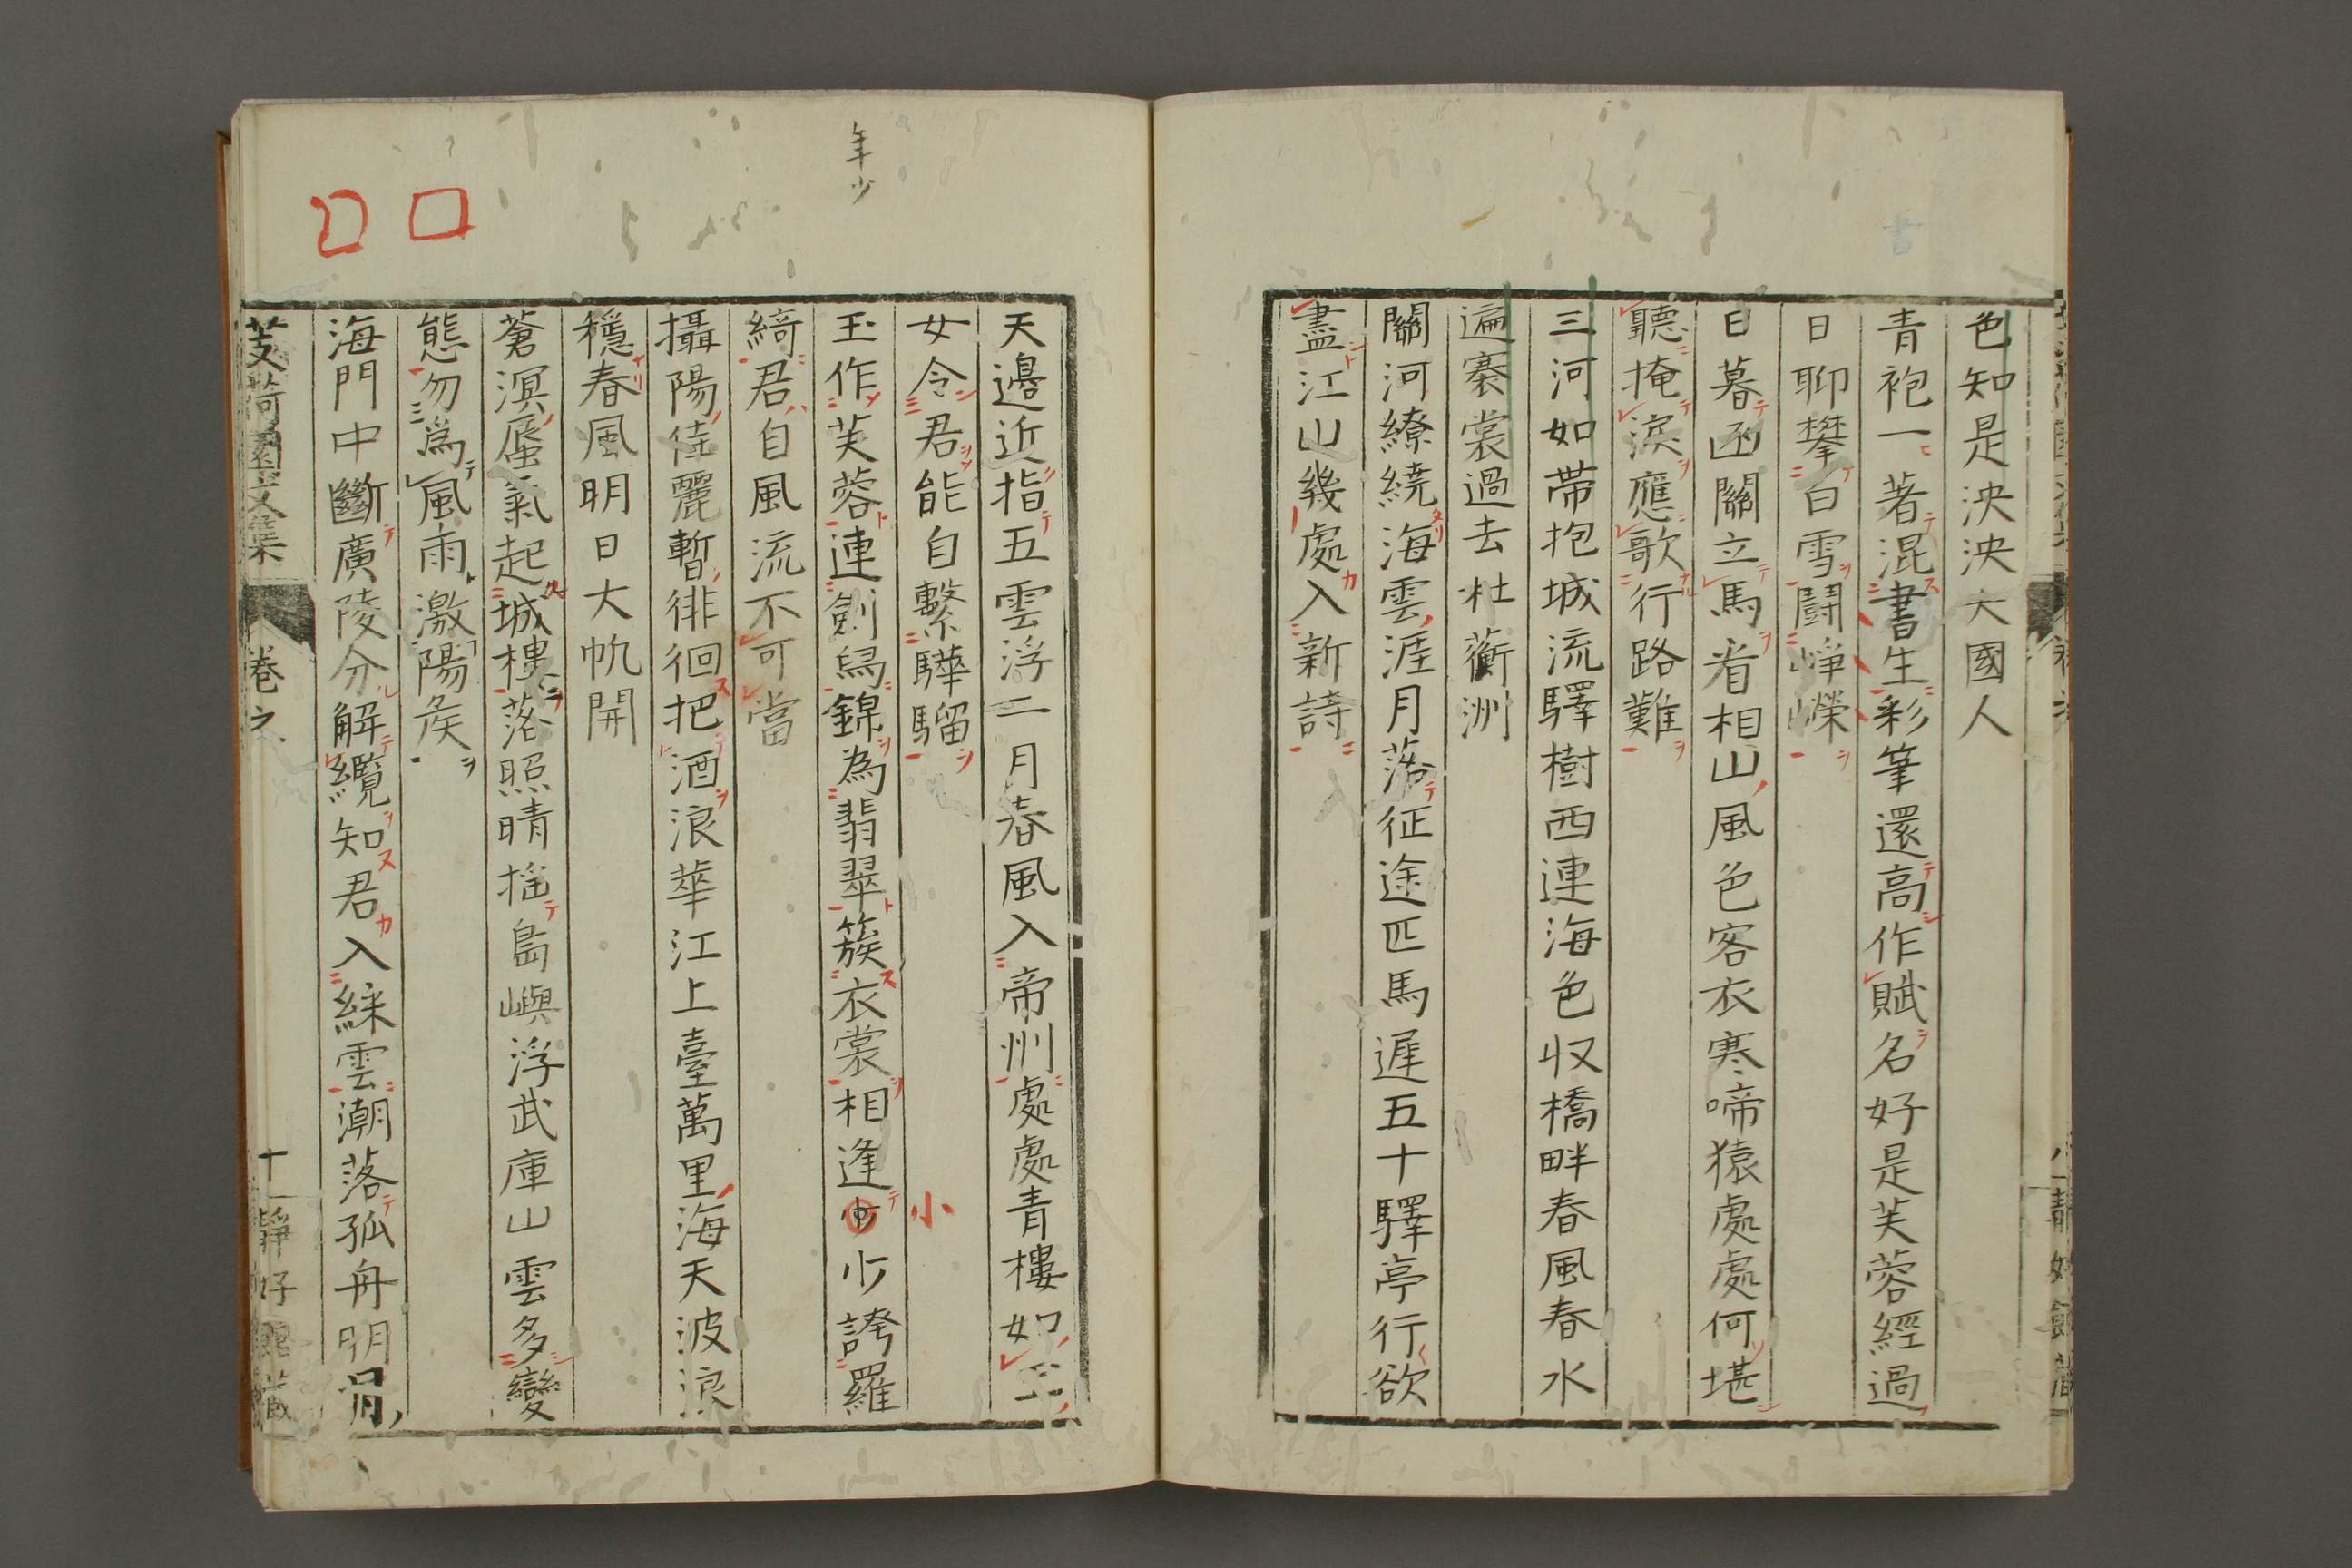 色知是泱泱大國人
青袍一著混書生彩筆還高作賦名好是芙蓉經過
日聊攀白雪鬪崢嶸
日暮函關立馬看相山風色客衣寒啼猿處處何堪
聽掩淚應歌行路難
三河如帶抱城流驛樹西連海色収橋畔春風春水
遍褰裳過去杜蘅洲
關河繚繞海雲涯月落征途匹馬遲五十驛亭行欲
盡江山幾處入新詩
年少
天邊近指五雲浮二月春風入帝州處處青樓如玉
女令君能自繫驊騮
小
玉作芙蓉連劍舄錦為翡翠簇衣裳相逢少誇羅
綺君自風流不可當
攝陽佳麗暫徘徊把酒浪華江上臺萬里海天波浪
穩春風明日大帆開
蒼溟蜃氣起城樓落照晴搖島嶼浮武庫山雲多變
態勿爲風雨激陽侯
海門中斷廣陵分解纜知君入綵雲潮落孤舟明月
芰荷園文集
卷之
十一
靜好館藏